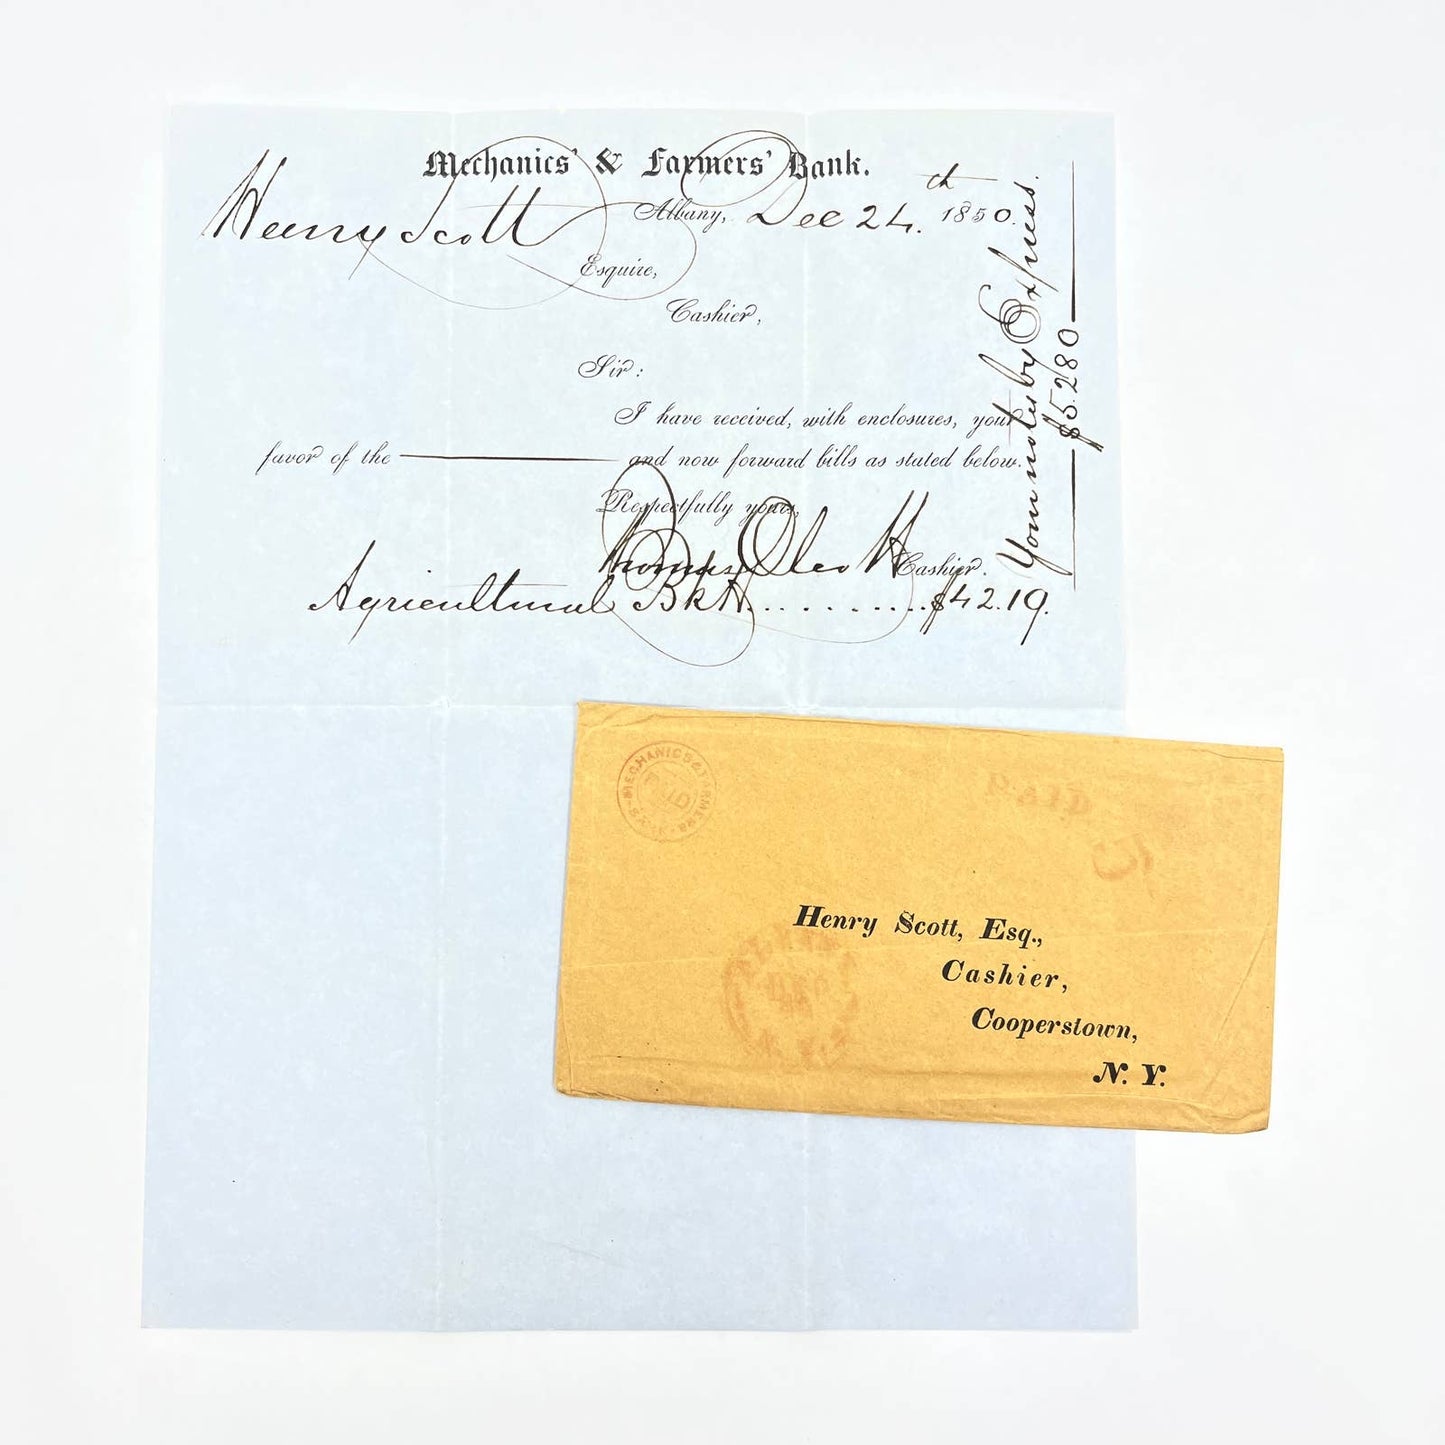 Mechanics' & Farmers' Bank.
Albany, Dec 24th 1850.
Henry Scott
Esquire,
Cashier,
Sir:
I have received, with enclosures, your
favor of the and now forward bills as stated below.
Respectfully yours,
Thomas W Olcott Cashier.
Agricultural Bk H.......... $42.19.
Your notes by Express.
$5.280
MECHANICS & FARMERS BANK
PAID
PAID
5
Henry Scott, Esq.,
Cashier,
Cooperstown,
N. Y.